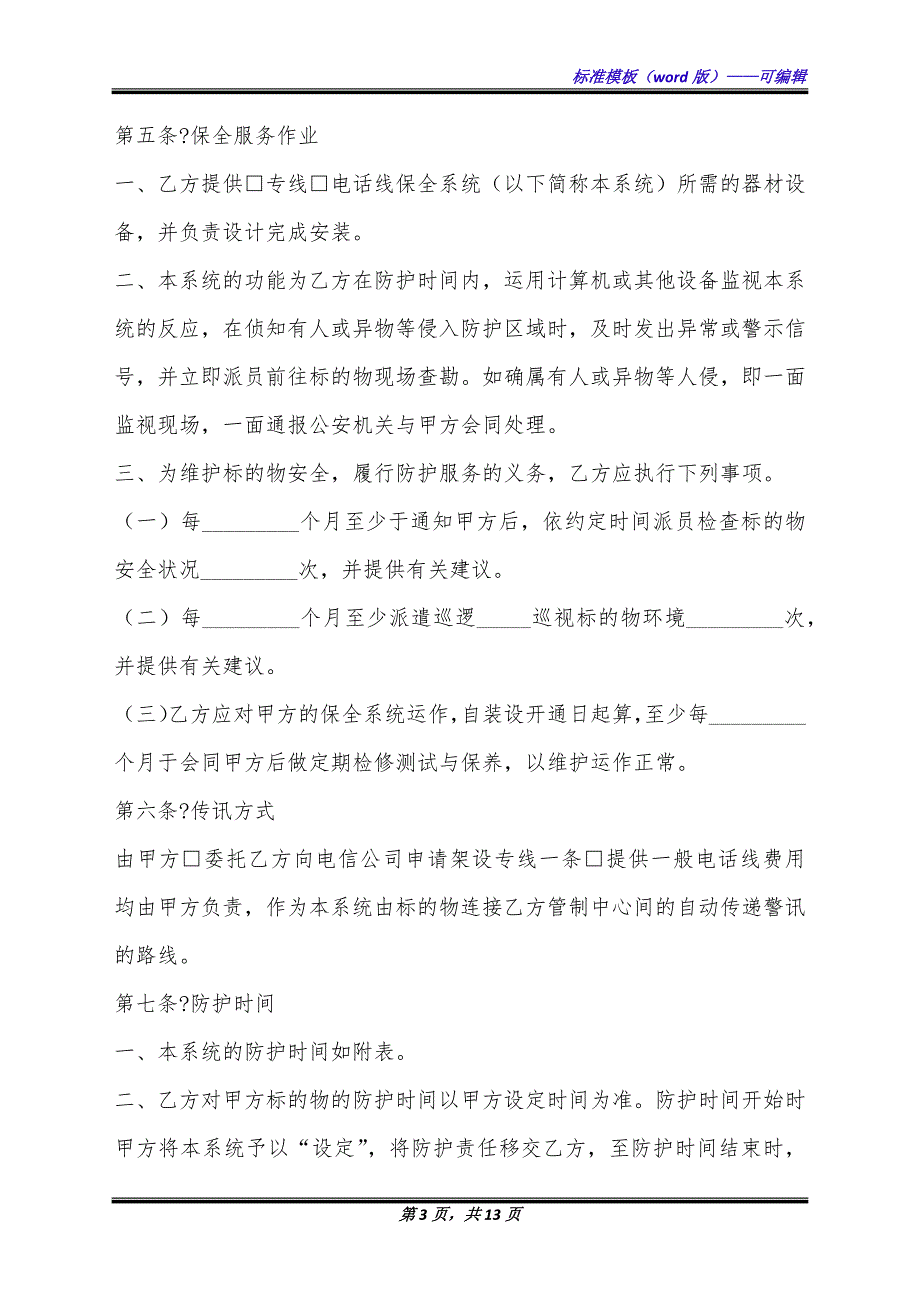 标准模板（word 版）——可编辑
第五条?保全服务作业
一、乙方提供□专线□电话线保全系统（以下简称本系统）所需的器材设
备，并负责设计完成安装。
二、本系统的功能为乙方在防护时间内，运用计算机或其他设备监视本系
统的反应，在侦知有人或异物等侵入防护区域时，及时发出异常或警示信
号，并立即派员前往标的物现场查勘。如确属有人或异物等人侵，即一面
监视现场，一面通报公安机关与甲方会同处理。
三、为维护标的物安全，履行防护服务的义务，乙方应执行下列事项。
（一）每_________个月至少于通知甲方后，依约定时间派员检查标的物
安全状况_________次，并提供有关建议。
（二）每_________个月至少派遣巡逻_____巡视标的物环境_________次，
并提供有关建议。
（三）乙方应对甲方的保全系统运作，自装设开通日起算，至少每_________
个月于会同甲方后做定期检修测试与保养，以维护运作正常。
第六条?传讯方式
由甲方□委托乙方向电信公司申请架设专线一条□提供一般电话线费用
均由甲方负责，作为本系统由标的物连接乙方管制中心间的自动传递警讯
的路线。
第七条?防护时间
一、本系统的防护时间如附表。
二、乙方对甲方标的物的防护时间以甲方设定时间为准。防护时间开始时
甲方将本系统予以“设定”，将防护责任移交乙方，至防护时间结束时，
第 3 页，共 13 页